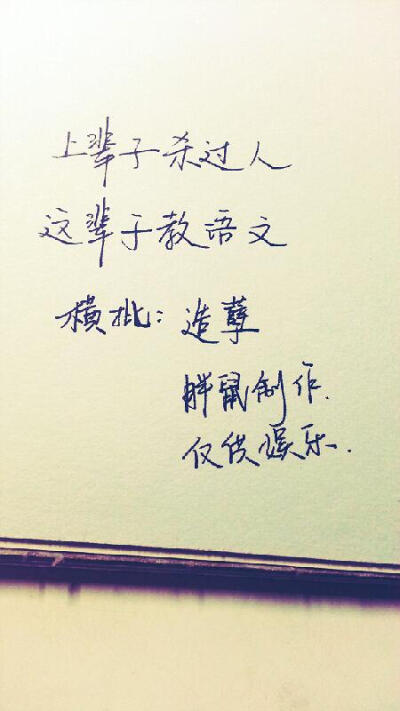 上辈子杀过人
这辈子教语文
横批：造孽
胖鼠制作.
仅供娱乐.